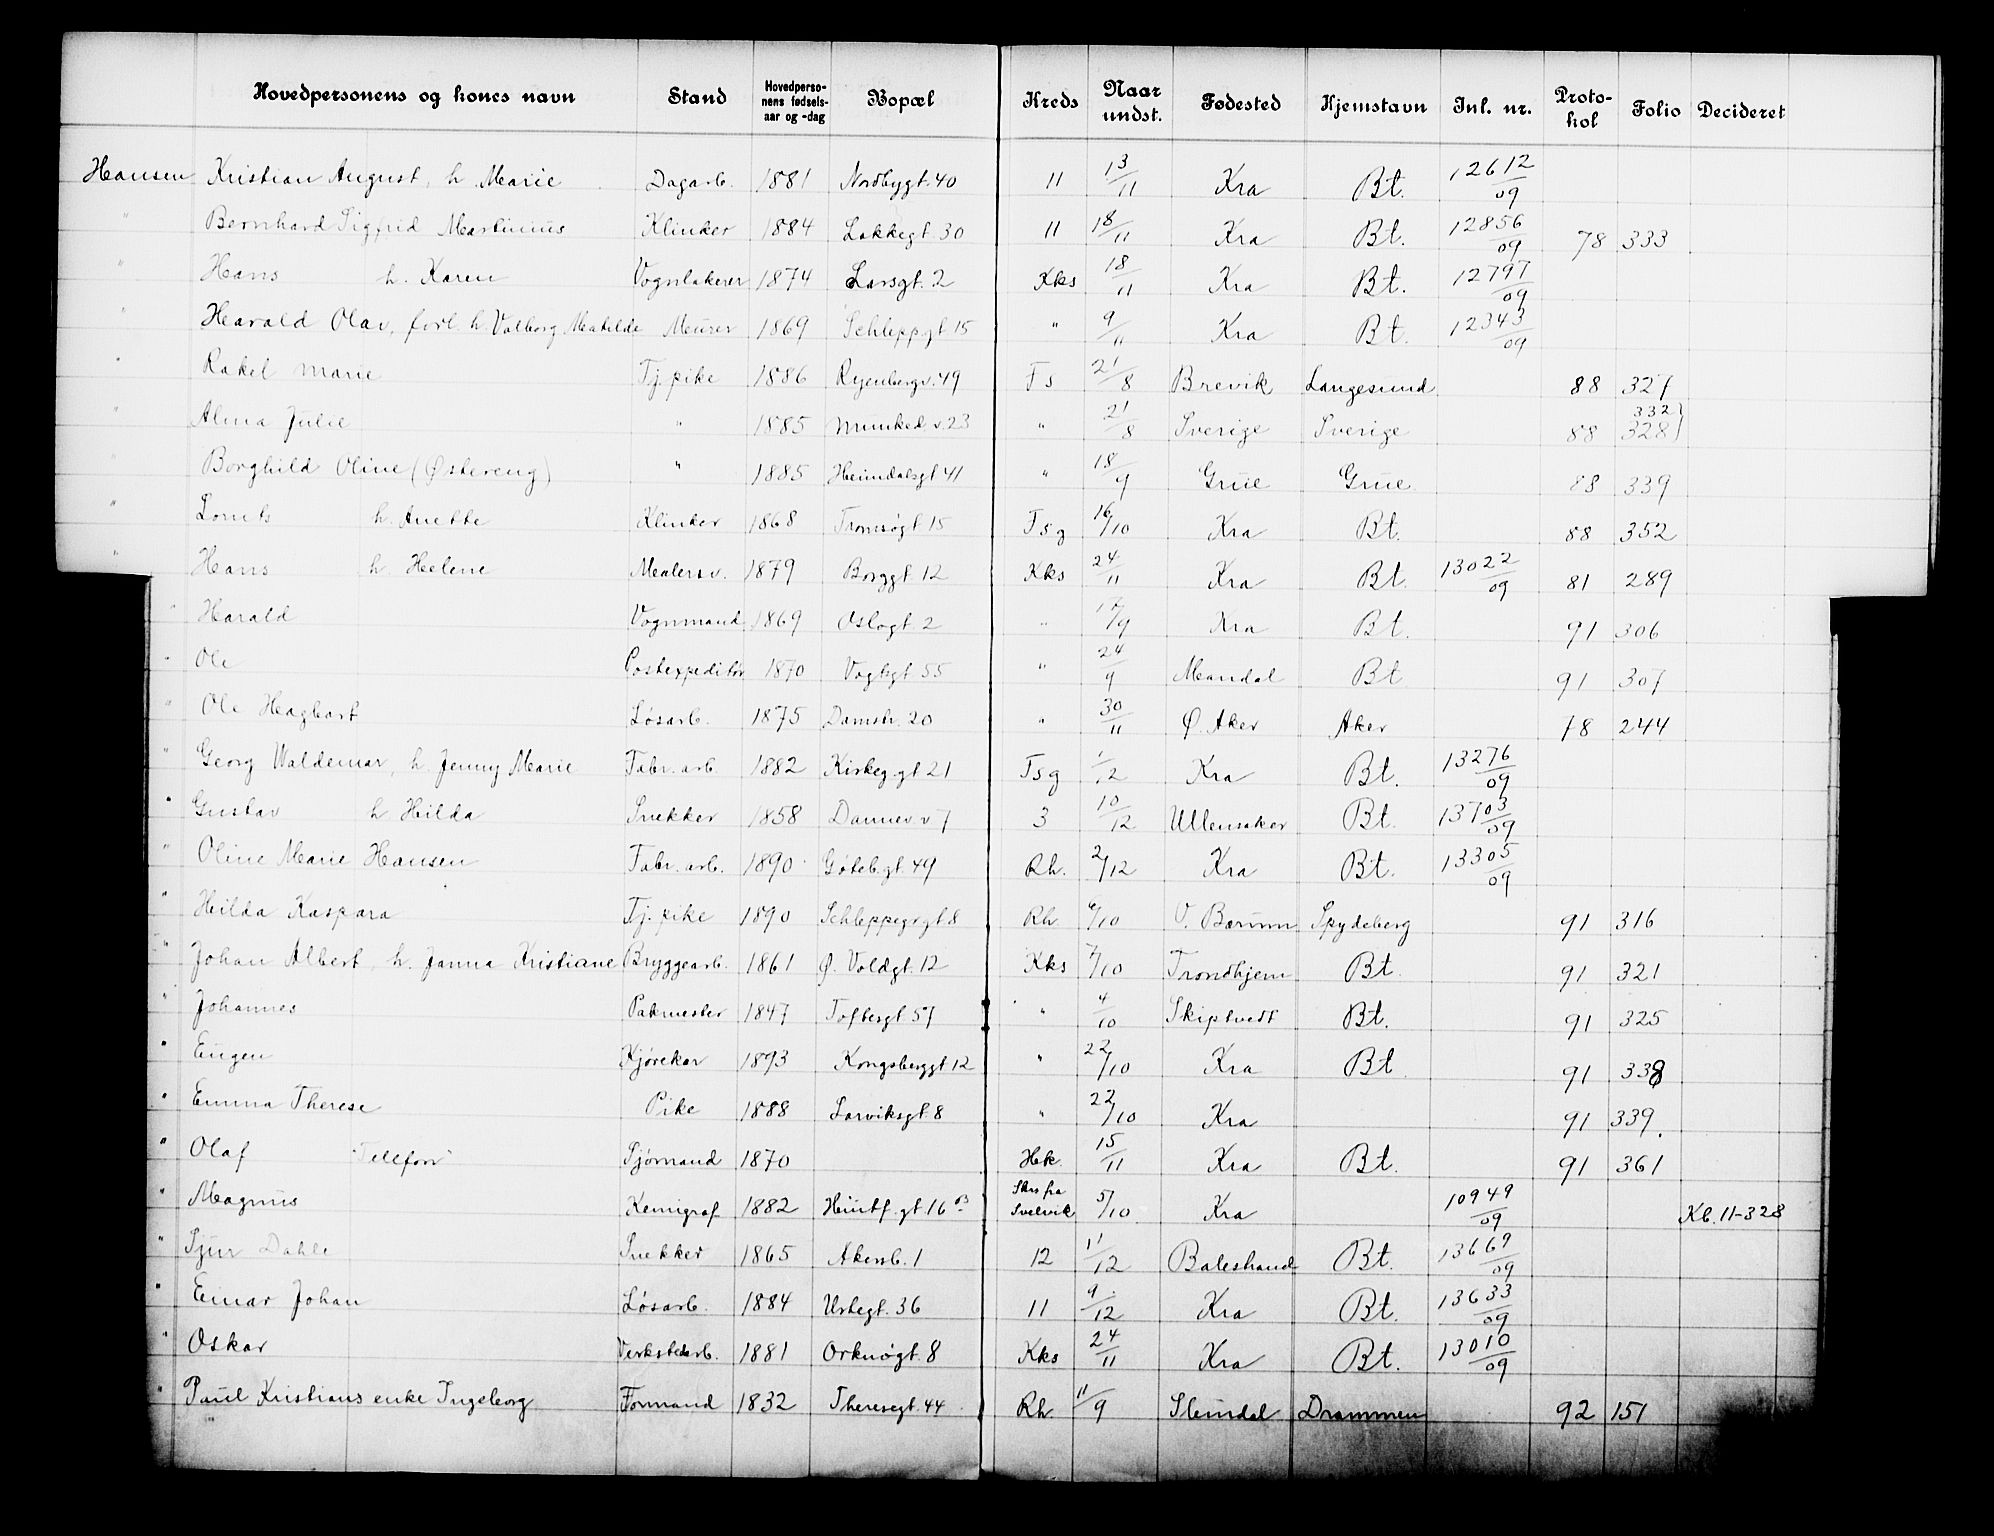 Hovedpersonens og kones navn Stand Hovedpersonens fødselsaar og -dag Bopæl Kreds Naar undst. Fødested Hjemstavn Inl. nr. Protokol Folio Decideret
Hansen Kristian August, h. Marie Dagarb. 1881 Nordbygt. 40 11 13/11 Kra Bt. 12612/09
" Bernhard Sigfrid Martinius Klinker 1884 Lakkegt. 30 11 18/11 Kra Bt. 12856/09 78 333
" Hans h. Karen Vognlakerer 1874 Larsgt. 2 Kks 18/11 Kra Bt. 12797/09
" Harald Olav, forl. h. Valborg Matilde Murer 1869 Schleppgt 15 " 9/11 Kra Bt. 12343/09
" Rakel Marie Tj. pike 1886 Ryenbergv. 49 Fs 21/8 Brevik Langesund 88 327
" Alma Julie " 1885 Munked. v. 23 " 21/8 Sverige Sverige 88 332 328
" Borghild Oline (Østereng) " 1885 Heimdalsgt 41 " 18/9 Grue Grue 88 339
" h. Anette Klinker 1868 Tromsøgt. 15 Tsg 16/10 Kra Bt. 88 352
" Hans h. Helene Malersv. 1879 Borggt. 12 Kks 24/11 Kra Bt. 13022/09 81 289
" Harald Vognmand 1869 Oslogt. 2 " 17/9 Kra Bt. 91 306
" Ole Postexpeditør 1870 Vogtgt 55 " 24/9 Mandal Bt 91 307
" Ole Hagbart Løsarb. 1875 Damstr. 20 " 30/11 Ø. Aker Aker 78 244
" Georg Waldemar, h. Jenny Marie Fabr. arb. 1882 Kirkeg. gt 21 Tsg 1/12 Kra Bt. 13276/09
" Gustav h Hilda Snekker 1858 Dannev. v 7 3 10/12 Ullensaker Bt. 13703/09
" Oline Marie Hansen Fabr. arb. 1890 Gøteb. gt. 49 Rh. 2/12 Kra Bt. 13305/09
" Hilda Kaspara Tj. pike 1890 Schleppegrgt 8 Rh. 6/10 V. Bærum Spydeberg 91 316
" Johan Albert, h. Janna Kristiane Bryggearb. 1861 Ø. Voldgt. 12 Kks 7/10 Trondhjem Bt 91 321
" Johannes Pakmester 1847 Toftesgt 57 " 4/10 Skiptvedt Bt. 91 325
" Eugen Kjørekar 1893 Kongsberggt 12 " 22/10 Kra Bt 91 338
" Emma Therese Pike 1888 Larviksgt. 8 " 22/10 Kra 91 339.
" Olaf Tellefsen Sjømand 1870 Hek. 15/11 Kra Bt. 91 361
" Magnus Kemigraf 1882 Huitf. gt. 16 B Skrs fra Svelvik 5/10 Kra 10949/09 Kb. 11-328
" Sjur Dahle Snekker 1865 Akersb. 1 12 11/12 Balestrand Bt. 13669/09
" Einar Johan Løsarb. 1884 Urtegt. 36 11 9/12 Kra Bt. 13633/09
" Oskar Verkstedarb. 1881 Orknøgt. 8 Kks 24/11 Kra Bt. 13010/09
" Paul Kristians enke Ingeborg Formand 1832 Theresegt. 44 Rh. 11/9 Drammen 92 151